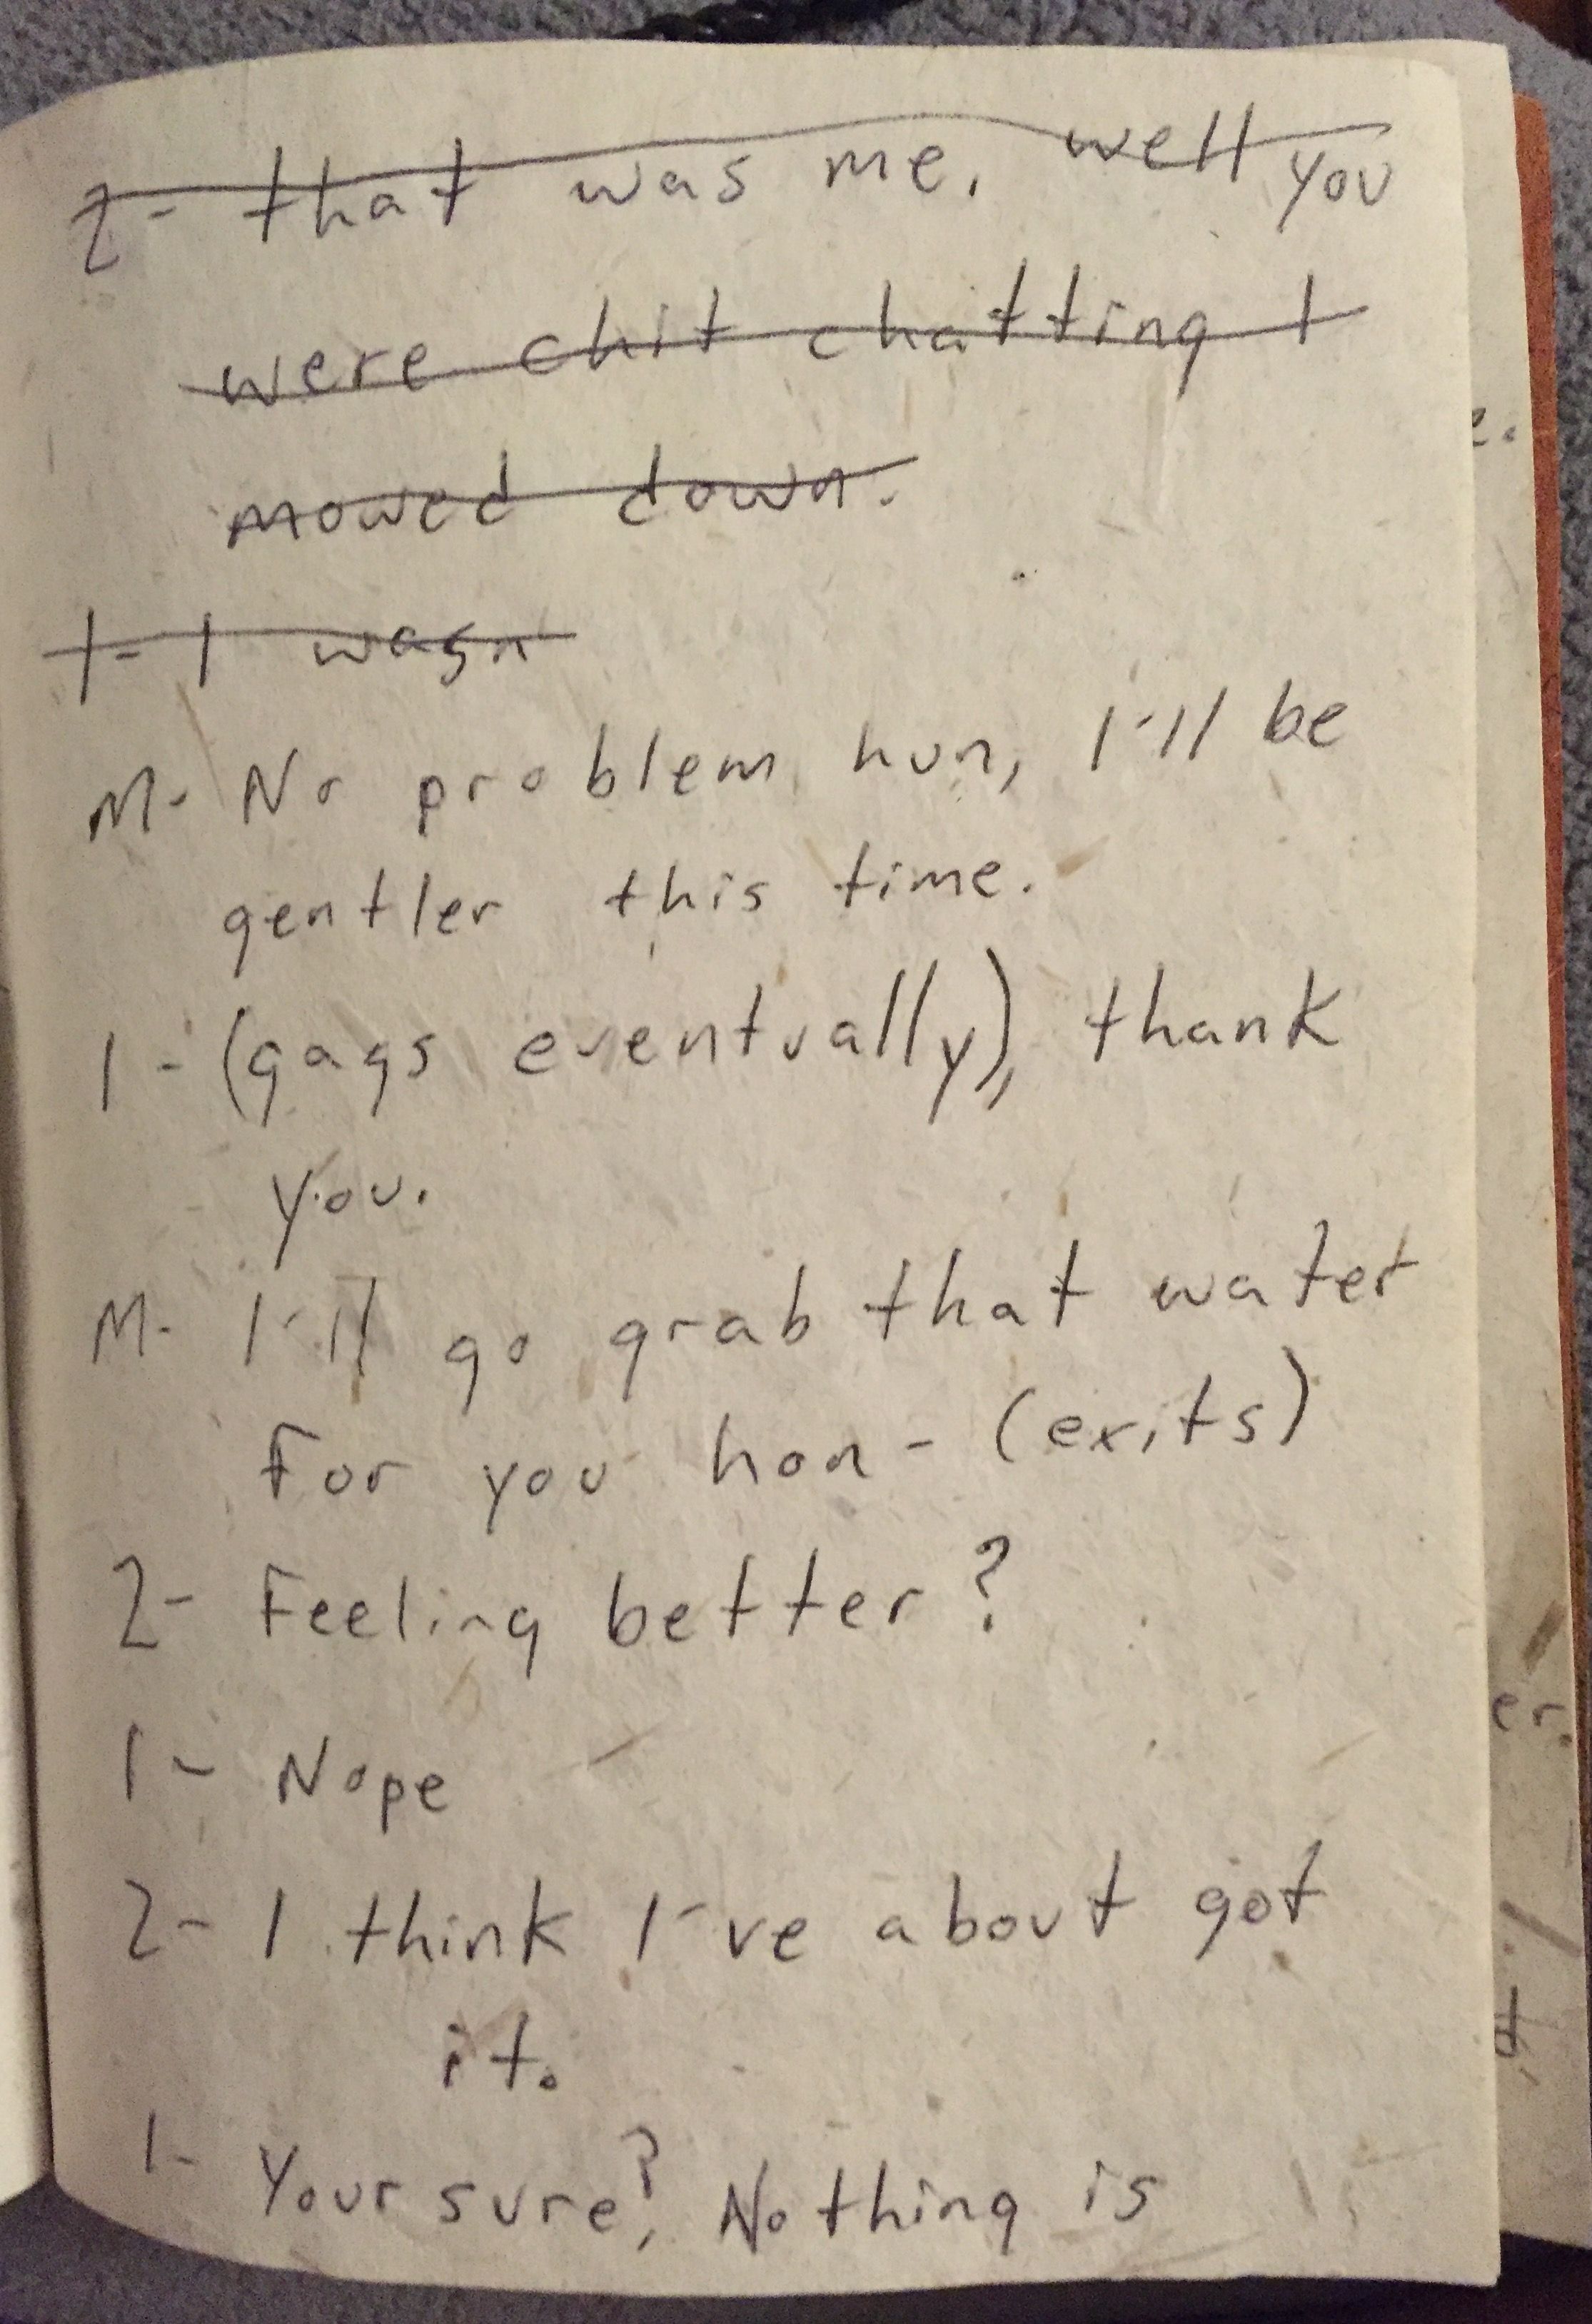 2- that was me. well you
were chit chatting I
mowed down.
1- I wasn
M- No problem hun, I'll be
gentler this time.
1- (gags eventually), thank
you.
M- I'll go grab that water
For you hon- (exits)
2- Feeling better?
1- Nope
2- I think I've about got
it.
1- Your sure?, Nothing is
e.
er.